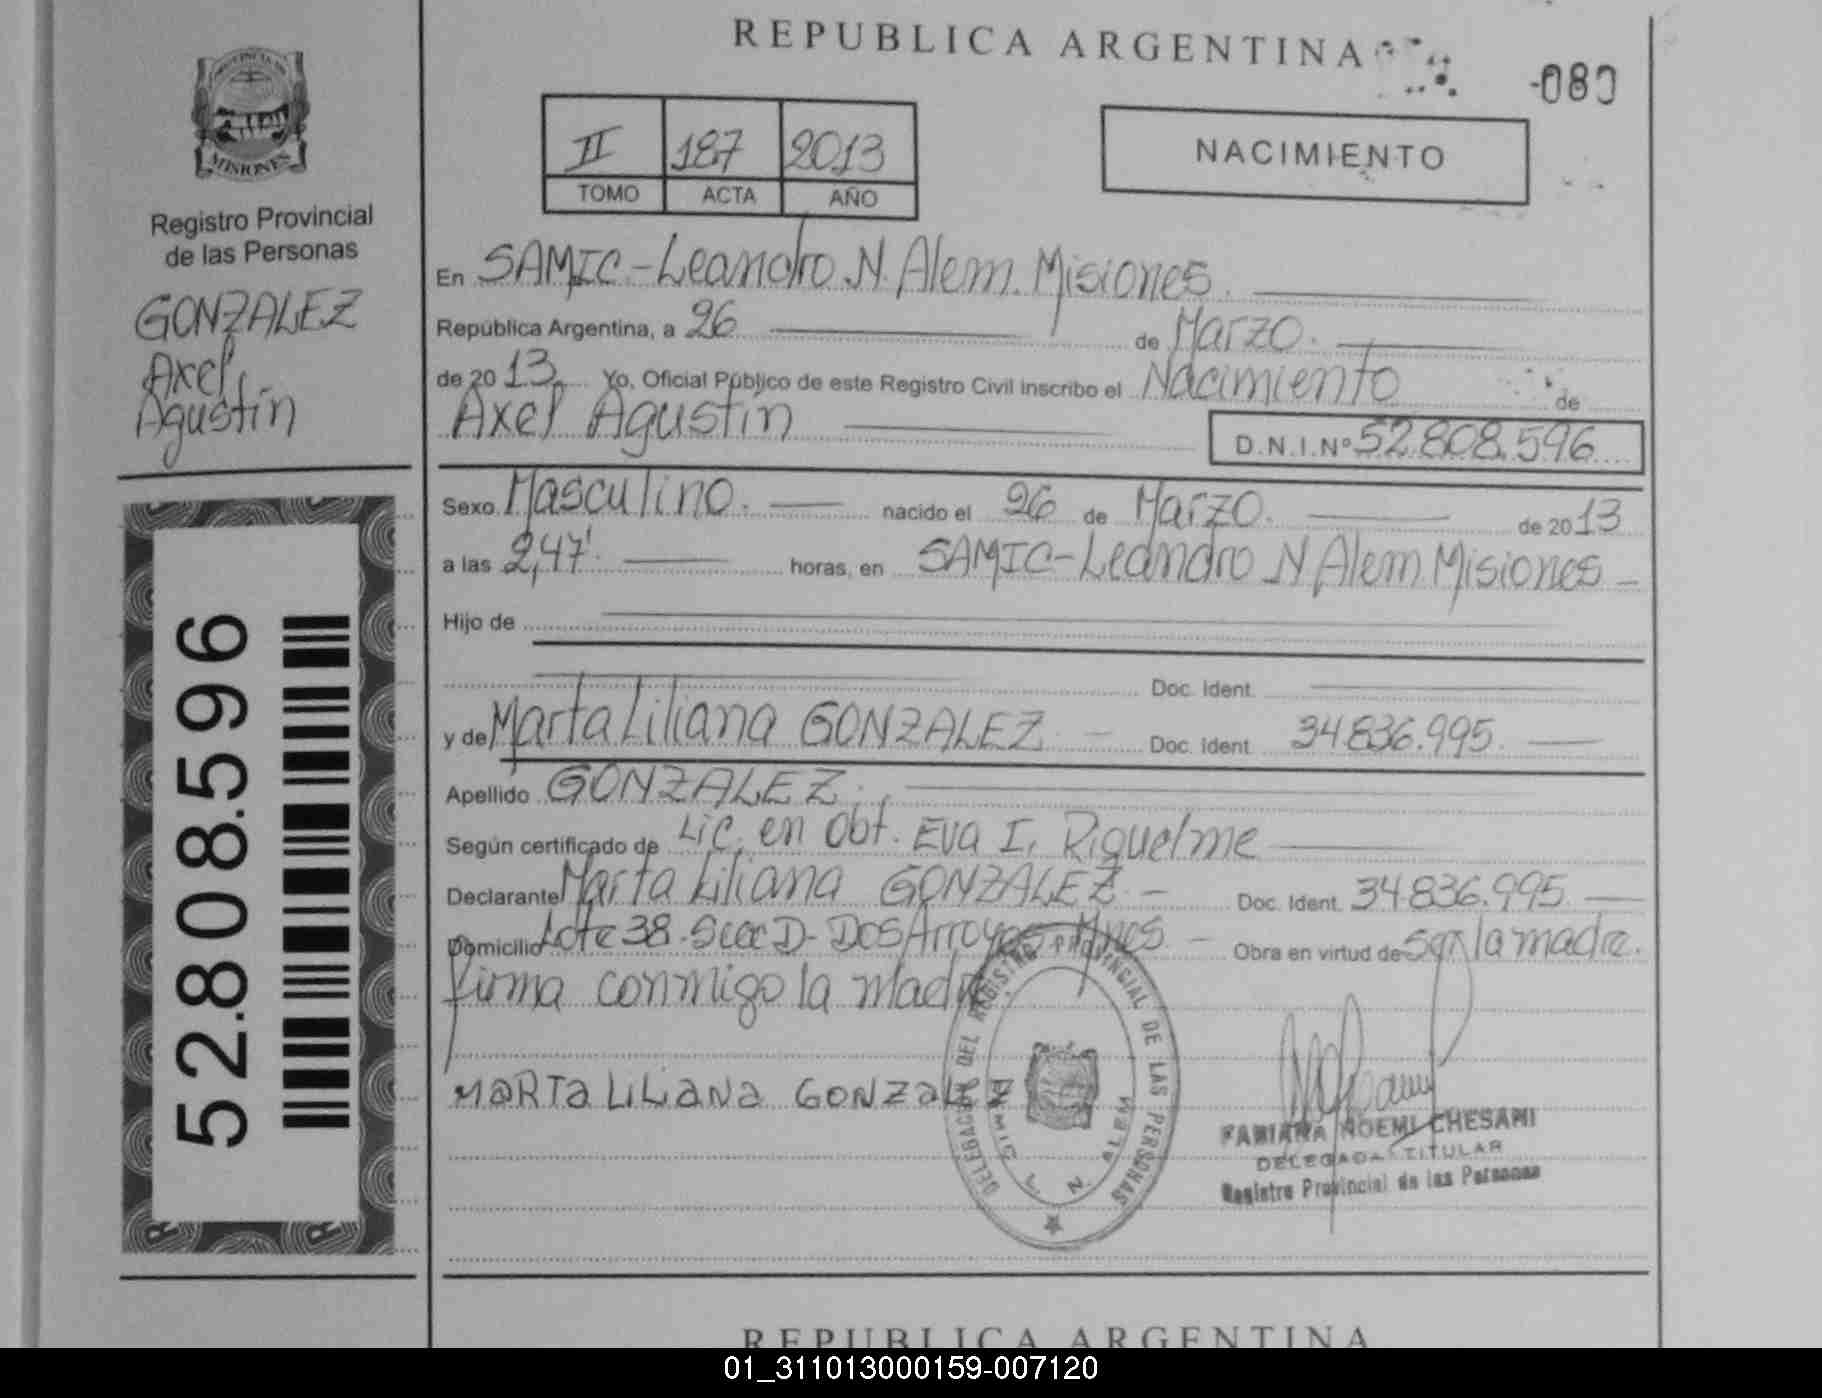 REPUBLICA ARGENTINA
-080
PROVINCIA DE
MISIONES
Registro Provincial
de las Personas
GONZALEZ
Axel
Agustín
52.808.596
II 187 2013
TOMO ACTA AÑO
NACIMIENTO
En SAMIC-Leandro N. Alem. Misiones.
República Argentina, a 26 de Marzo.
de 2013. Yo, Oficial Público de este Registro Civil inscribo el Nacimiento de
Axel Agustín D.N.I.Nº 52.808.596
Sexo Masculino. nacido el 26 de Marzo. de 2013
a las 2,47'. horas, en SAMIC-Leandro N Alem. Misiones
Hijo de
Doc. Ident.
y de Marta Liliana GONZALEZ Doc. Ident. 34.836.995.
Apellido GONZALEZ.
Según certificado de Lic. en Obt. Eva I. Riquelme
Declarante Marta Liliana GONZALEZ. Doc. Ident. 34.836.995.
Domicilio Lote 38. Secc D- Dos Arroyos Mnes. Obra en virtud de ser la madre.
firma conmigo la madre.
MARTA LILIANA GONZALEZ
DELEGACION DEL REGISTRO PROVINCIAL DE LAS PERSONAS
SAMIC L N ALEM
FABIANA NOEMI CHESANI
DELEGADA TITULAR
Registro Provincial de las Personas
REPUBLICA ARGENTINA
01_311013000159-007120